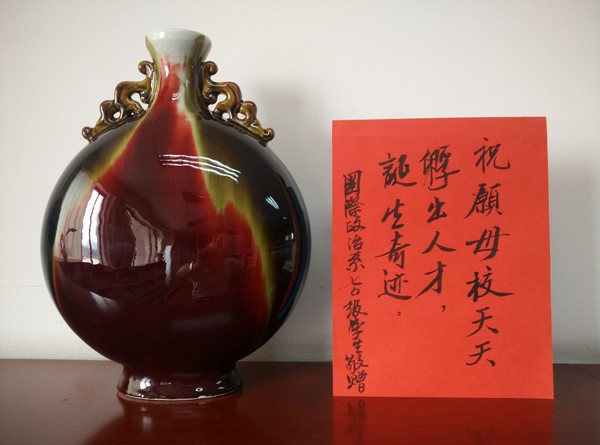 祝願母校天天
孵出人才，
誕生奇迹。
國際政治系七〇級學生敬贈